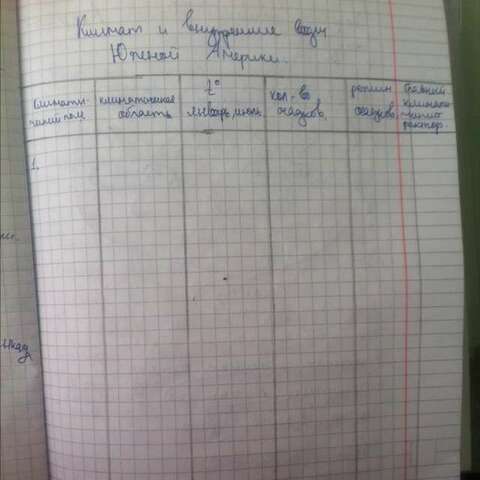 Климат и внутренние воды
Южной Америки.
климати-
ческий пояс
климатическая
область
t°
январь, июль
кол-во
осадков.
режим
осадков.
Главный
климато-
фактор.
1.